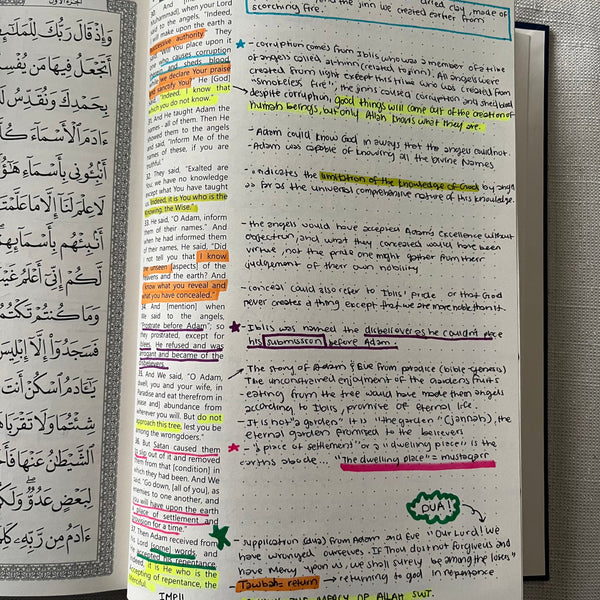 الجزء الأول
وَإِذْ قَالَ رَبُّكَ لِلْمَلَٰٓئِ
أَتَجْعَلُ فِيهَا مَن يُفْسِ
بِحَمْدِكَ وَنُقَدِّسُ لَ
ءَادَمَ ٱلْأَسْمَآءَ كُلَّ
أَنۢبِـُٔونِى بِأَسْمَآءِ هَٰٓؤُ
لَا عِلْمَ لَنَآ إِلَّا مَا عَلَّمْتَ
أَنۢبِئْهُم بِأَسْمَآئِهِمْ
لَّكُمْ إِنِّىٓ أَعْلَمُ غَيْ
وَمَا كُنتُمْ تَكْتُمُ
فَسَجَدُوٓا۟ إِلَّآ إِبْلِيسَ
يَٰٓـَٔادَمُ ٱسْكُنْ أَنتَ
شِئْتُمَا وَلَا تَقْرَبَا
ٱلشَّيْطَٰنُ عَنْهَا فَأَخْ
لِبَعْضٍ عَدُوٌّ وَلَكُمْ
ءَادَمُ مِن رَّبِّهِۦ كَلِ
30. And [mention, O
Muhammad], when your Lord
said to the angels, "Indeed,
I will make upon the earth a
successive authority." They
said, "Will You place upon it
one who causes corruption
therein and sheds blood,
while we declare Your praise
and sanctify You?" He [God]
said, "Indeed, I know that
which you do not know."
31. And He taught Adam the
names - all of them. Then He
showed them to the angels
and said, "Inform Me of the
names of these, if you are
truthful."
32. They said, "Exalted are
You; we have no knowledge
except what You have taught
us. Indeed, it is You who is the
Knowing, the Wise."
33. He said, "O Adam, inform
them of their names." And
when he had informed them
of their names, He said, "Did
I not tell you that I know
the unseen [aspects] of the
heavens and the earth? And I
know what you reveal and
what you have concealed."
34. And [mention] when
We said to the angels,
"Prostrate before Adam"; so
they prostrated, except for
Iblees. He refused and was
arrogant and became of the
disbelievers.
35. And We said, "O Adam,
dwell, you and your wife, in
Paradise and eat therefrom in
[ease and] abundance from
wherever you will. But do not
approach this tree, lest you be
among the wrongdoers."
36. But Satan caused them
to slip out of it and removed
them from that [condition] in
which they had been. And We
said, "Go down, [all of you], as
enemies to one another, and
you will have upon the earth
a place of settlement and
provision for a time."
37. Then Adam received from
his Lord [some] words, and
He accepted his repentance.
Indeed, it is He who is the
Accepting of repentance, the
Merciful.
dried clay, made of
and the jinn we created earlier from
scorching fire.
- corruption comes from Iblis who was a member of a tribe
of angels called al-jinn (related to jinn). All angels were
created from light except this tribe who was created from
"smokeless fire". the jinns caused corruption and shed blood
despite corruption, good things will come out of the creation of
human beings, but only Allah knows what they are.
- Adam could know God in ways that the angels could not.
- Adam was capable of knowing all the Divine Names
- indicates the limitation of the knowledge of God by angels
as far as the universal comprehensive nature of this knowledge.
- the angels would have accepted Adam's excellence without
objection, and what they conceived would have been
virtue, not the pride one might gather from their
judgement of their own nobility
- conceal could also refer to Iblis' pride or that God
never creates a thing except that we are more noble than it.
- Iblis was named the disbeliever as he couldn't place
his submission before Adam.
- The story of Adam & Eve from paradise (bible-genesis)
The unconstrained enjoyment of the gardens fruits
- eating from the tree would have made them angels
according to Iblis, promise of eternal life.
- It is not "a garden", it is "the garden" (jannah), the
eternal garden promised to the believers
- "a place of settlement" or "a dwelling place" is the
earths abode... "The dwelling place" = mustaqarr
DUA!
- supplication (dua) from Adam and Eve "Our Lord! We
have wronged ourselves. If Thou dost not forgive us and
have Mercy upon us, we shall surely be among the losers"
Tawbah = return → returning to god in repentance.
MERCY OF ALLAH SWT.